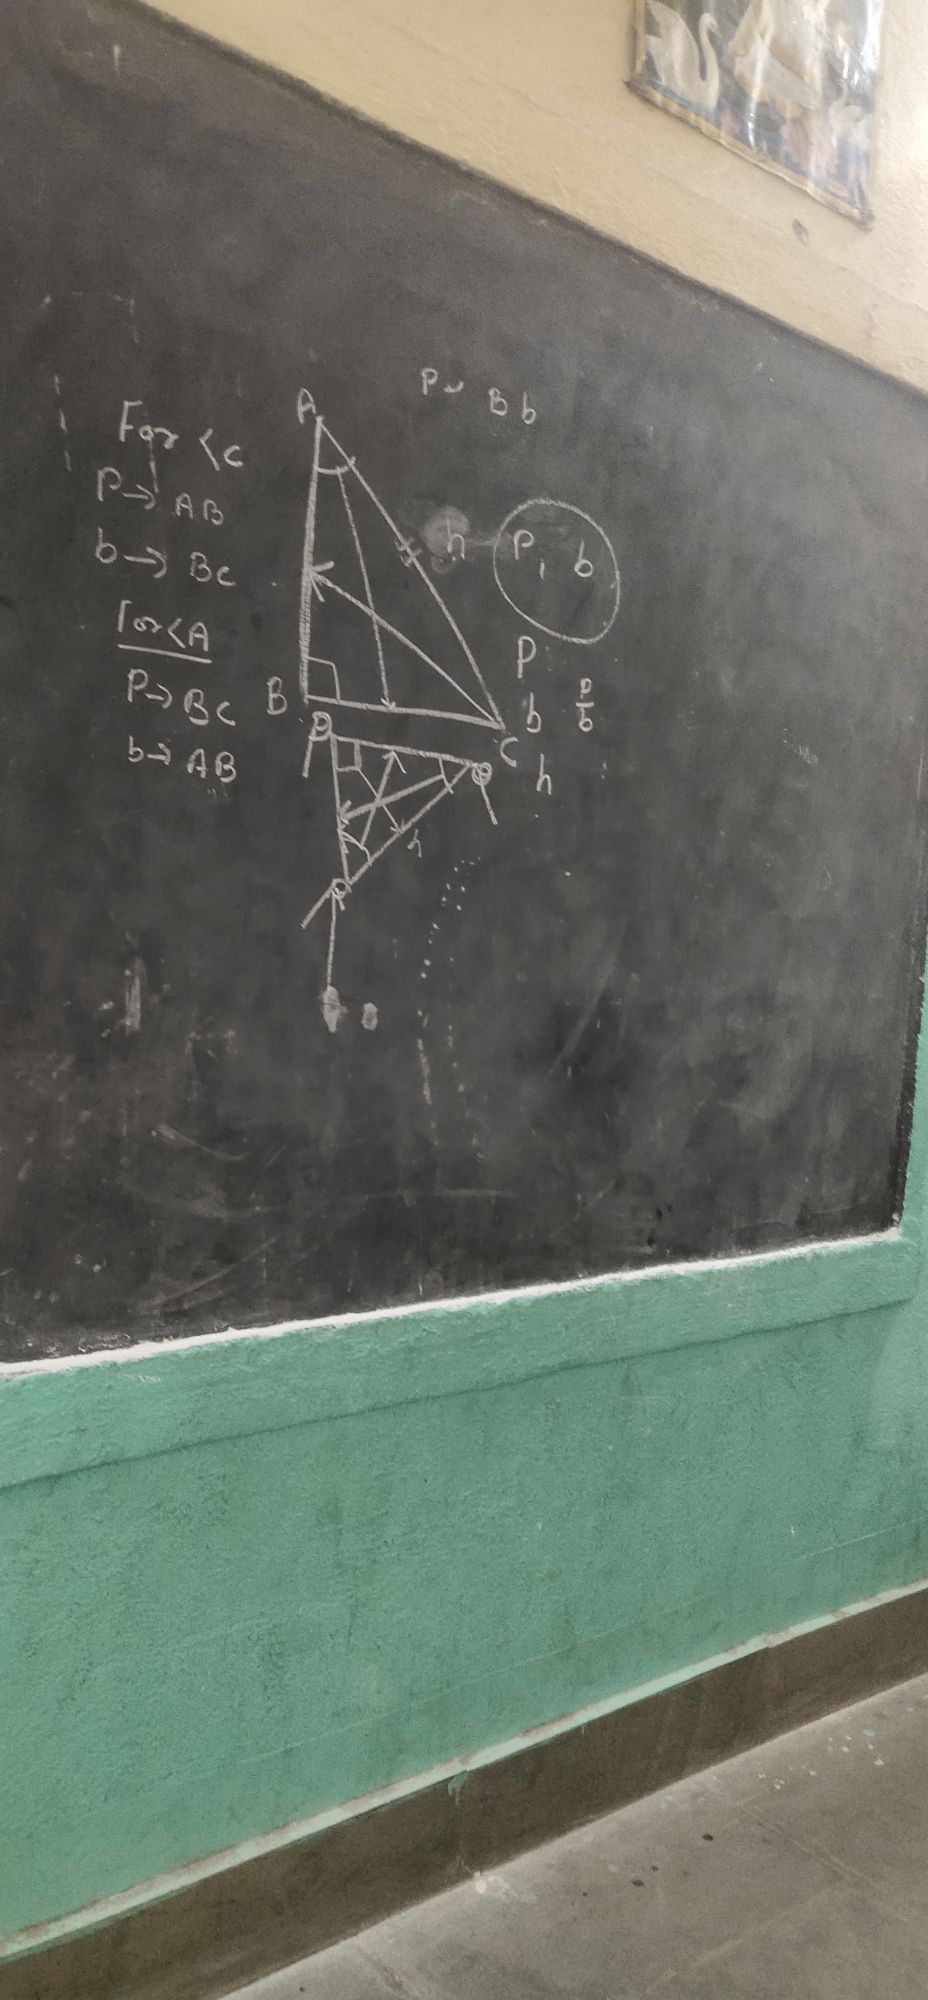 P Bb
A
For <C
P→ AB
b→ BC
For<A
P→ BC
b→ AB
h
P, b
P
b
P
b
h
B
C
P
Q
R
h